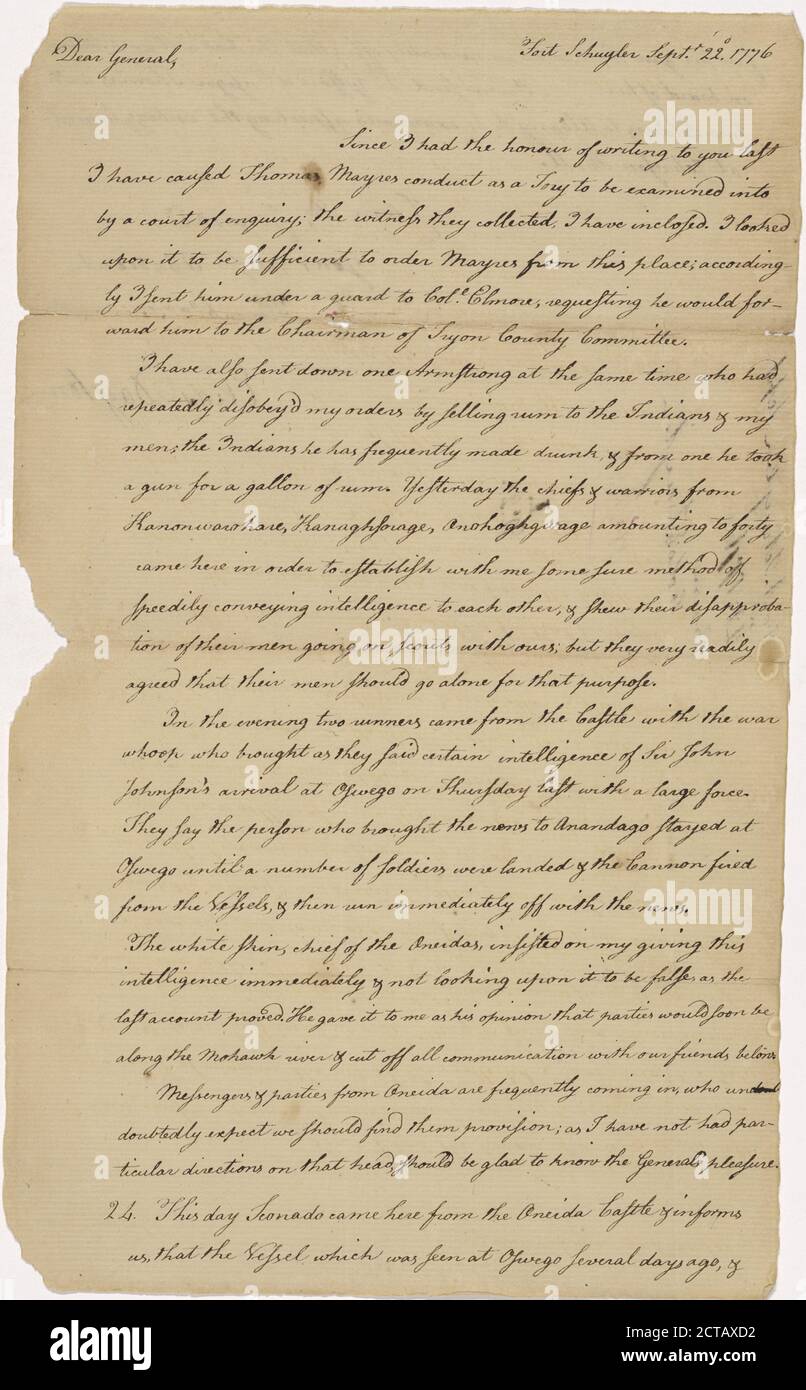 Dear General,
Fort Schuyler Sept.r 22.o 1776
Since I had the honour of writing to you last
I have caused Thomas Mayres conduct as a Tory to be examined into
by a court of enquiry; the witness they collected, I have inclosed. I looked
upon it to be sufficient to order Mayres from this place; according-
ly I sent him under a guard to Col.o Elmore, requesting he would for-
ward him to the Chairman of Tryon County Committee.
I have also sent down one Armstrong at the same time who had
repeatedly disobey'd my orders by selling rum to the Indians & my
men; the Indians he has frequently made drunk, & from one he took
a gun for a gallon of rum. Yesterday the chiefs & warriors from
Kanonwarohare, Kanaghsorage, Onohoghgwage amounting to forty
came here in order to establish with me some sure method of
speedily conveying intelligence to each other, & shew their disapproba-
tion of their men going on scouts with ours; but they very readily
agreed that their men should go alone for that purpose.
In the evening two runners came from the Castle with the war
whoop who brought as they said certain intelligence of Sir John
Johnson's arrival at Oswego on Thursday last with a large force.
They say the person who brought the news to Anandago stayed at
Oswego until a number of soldiers were landed & the Cannon fired
from the Vessels, & then run immediately off with the news.
The white skin, chief of the Oneidas, insisted on my giving this
intelligence immediately & not looking upon it to be false as the
last account proved. He gave it to me as his opinion that parties would soon be
along the Mohawk river & cut off all communication with our friends below.
Messengers & parties from Oneida are frequently coming in, who un
doubtedly expect we should find them provision; as I have not had par-
ticular directions on that head, should be glad to know the Generals pleasure.
24. This day Sconado came here from the Oneida Castle & informs
us, that the Vessel which was seen at Oswego several days ago, &
alamy
Image ID: 2CTAXD2
www.alamy.com